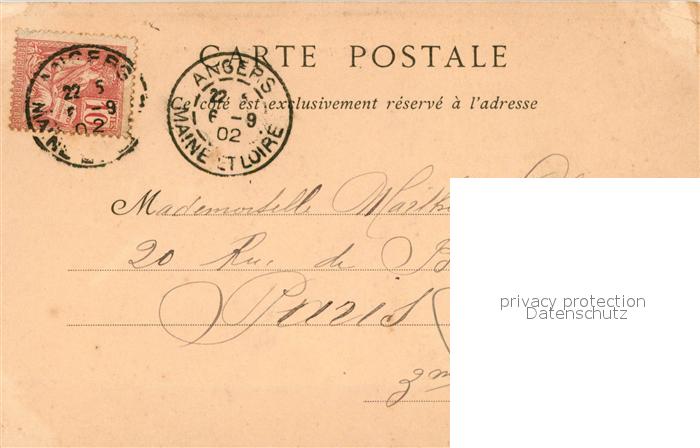 CARTE POSTALE
Ce côté est exclusivement réservé à l'adresse
ANGERS
22
5
9
02
MAINE
10
ANGERS
22
6 - 9
02
MAINE ET LOIRE
Mademoiselle
20 Rue de
Paris
privacy protection
Datenschutz